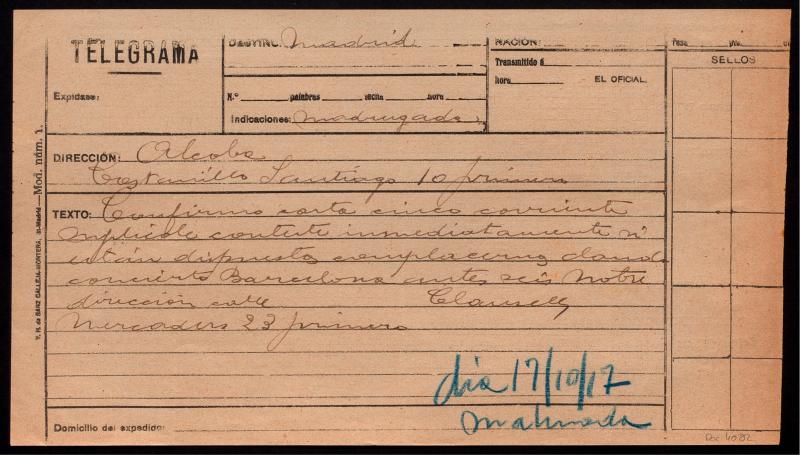 TELEGRAMA
DESTINO: Madrid
NACIÓN:
Transmitido á
hora EL OFICIAL,
SELLOS
Expídase:
N.º palabras fecha hora
Indicaciones: madrugada
DIRECCIÓN: Alcoba
Costanilla Santiago 10 primero
TEXTO: Confirmo carta cinco corriente
suplícole conteste inmediatamente si
están dispuestos complacernos dando
concierto Barcelona antes seis Nobre
dirección calle Clausells
Mercaders 23 primero
día 17/10/17
Domicilio del expedidor
Y. H. de SANZ CALLEJA-MONTERA, 31-Madrid—Mod. núm. 1.
Doc 4022